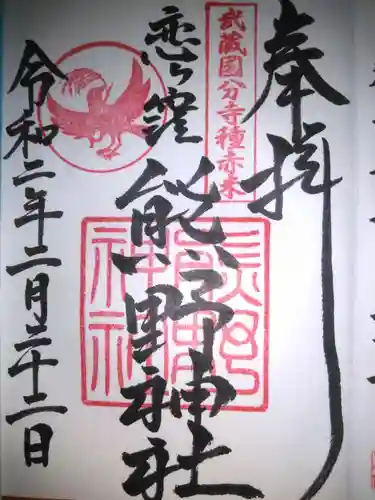 奉拝
武蔵国分寺種赤米
恋ヶ窪
熊野神社
熊野
神社
令和二年二月二十二日